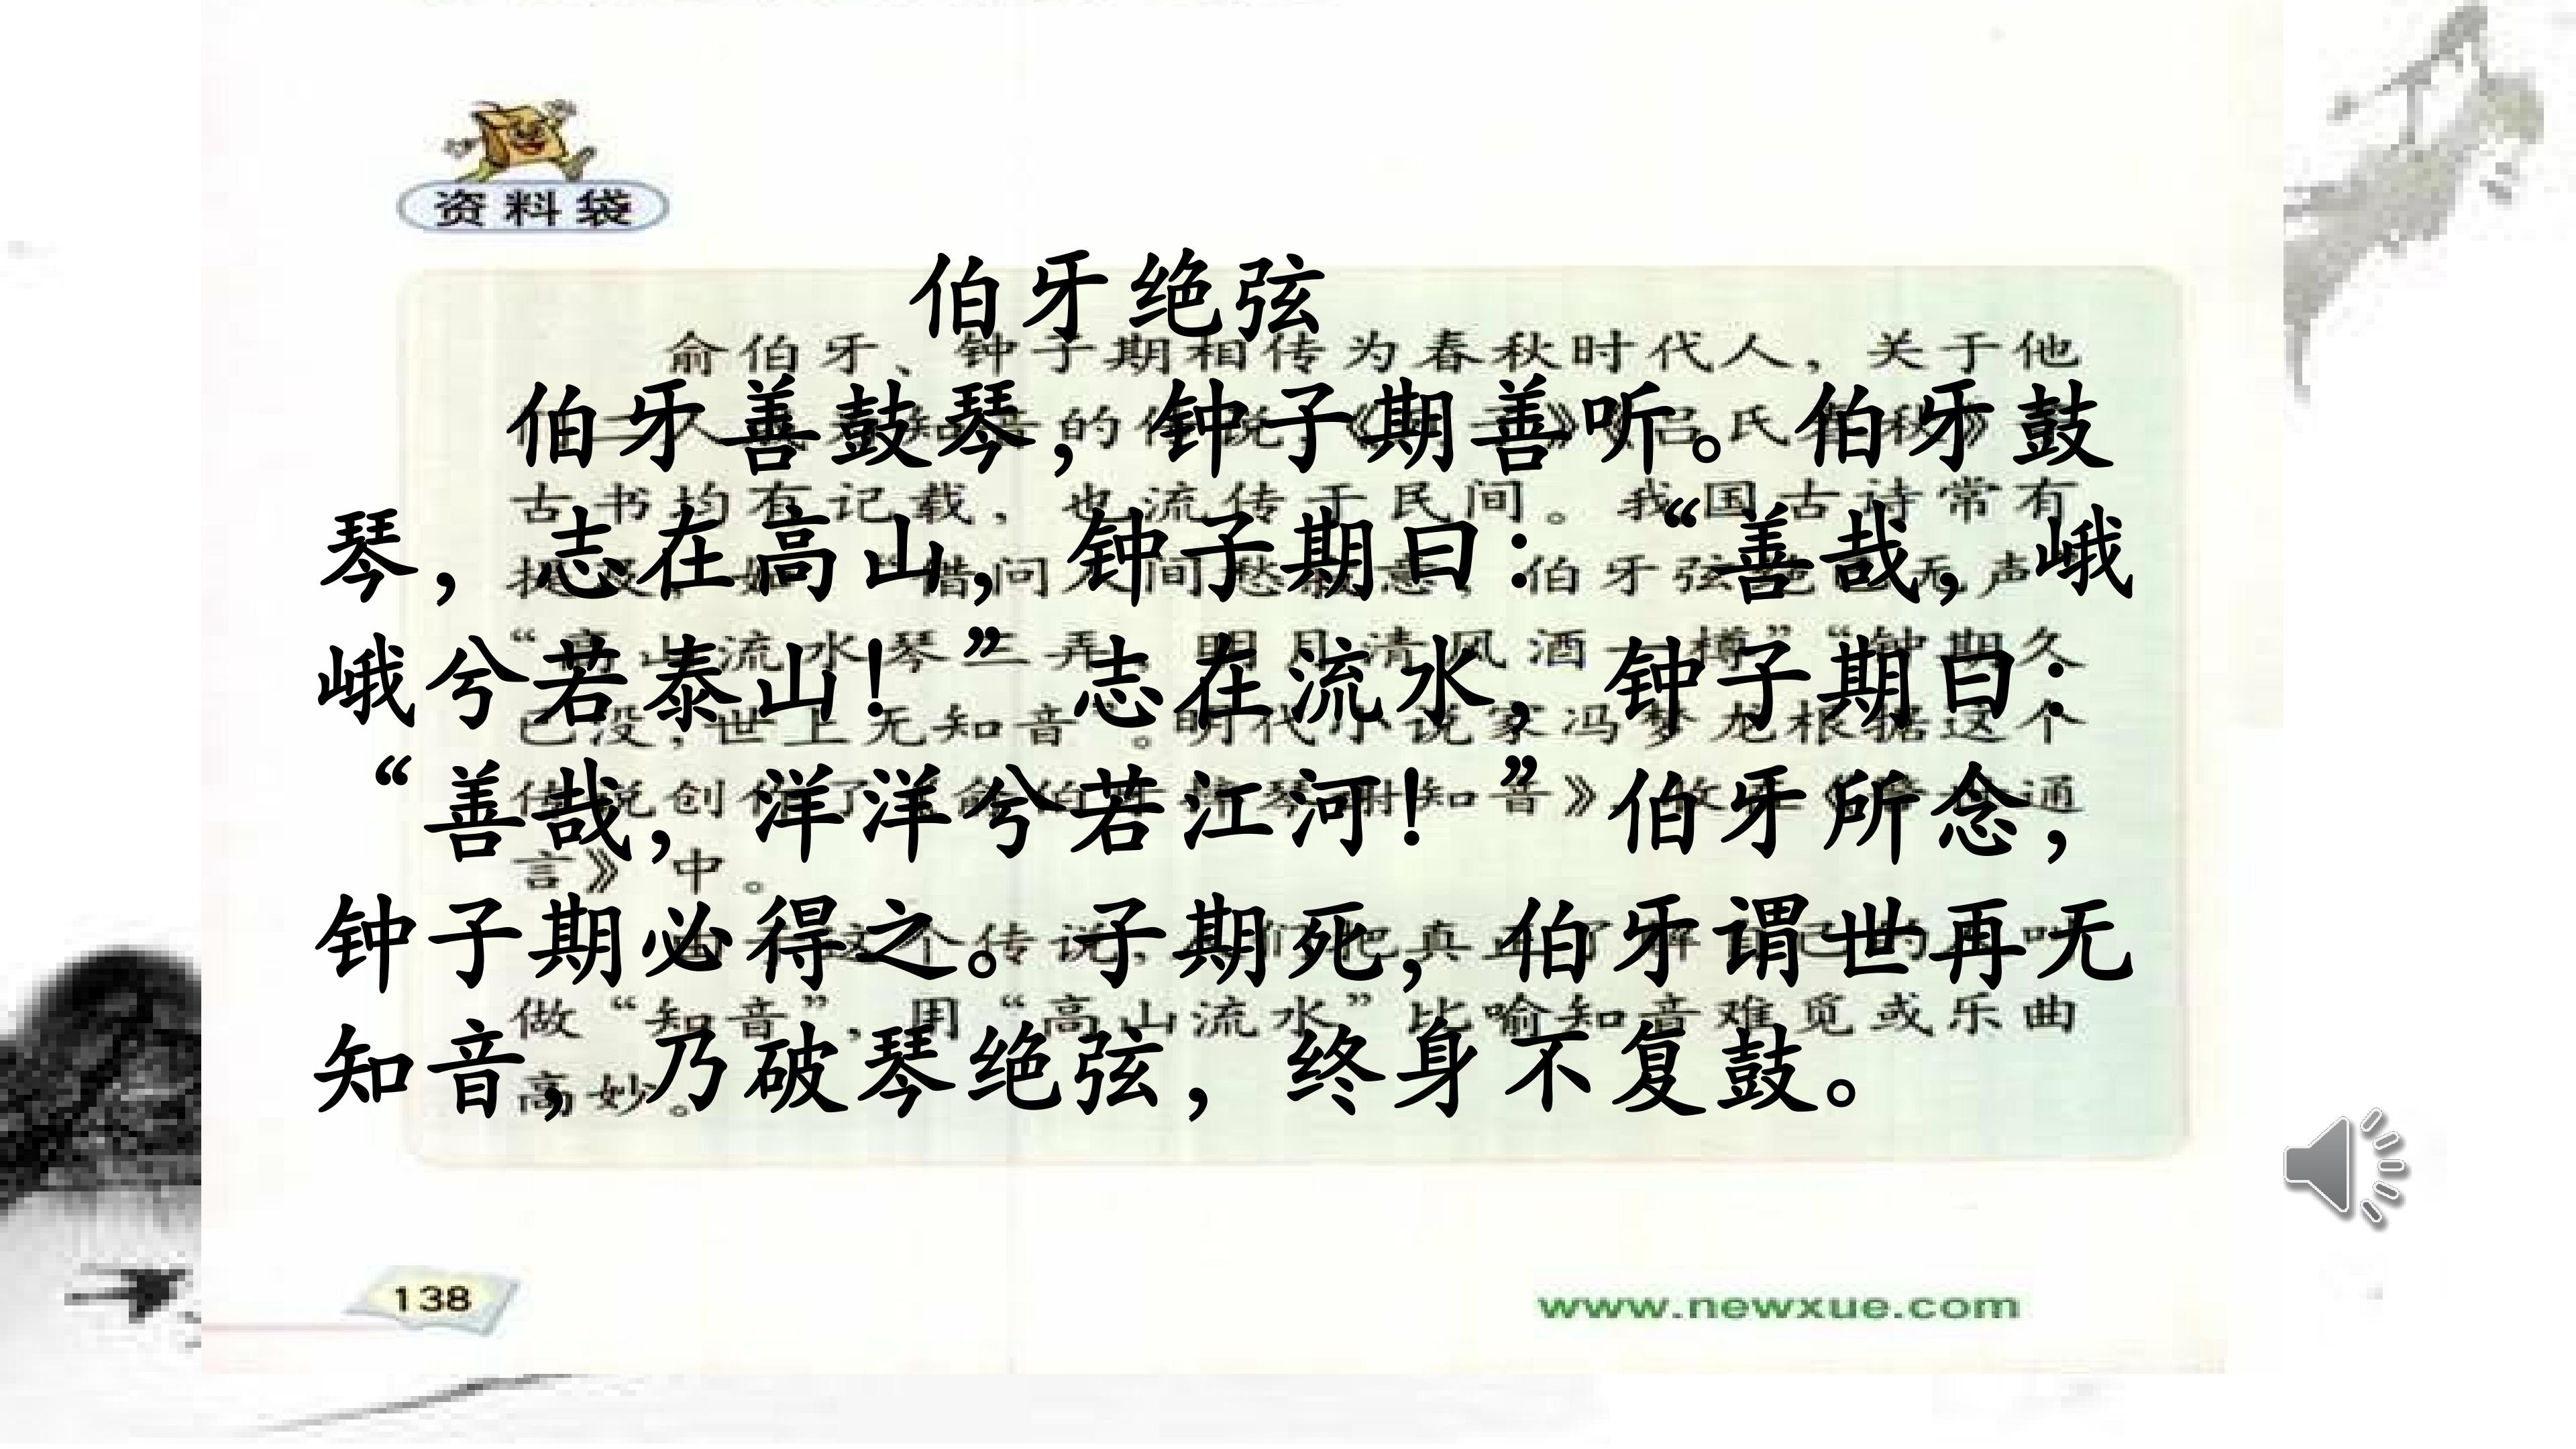 资料袋
伯牙绝弦
俞伯牙、钟子期相传为春秋时代人，关于他
伯牙善鼓琴，钟子期善听。伯牙鼓
古书均有记载，也流传于民间。我国古诗常有
琴，志在高山，钟子期曰：“善哉，峨
问 间愁 意，伯牙弦 无声
“高山流水琴三弄，明月清风酒一樽”“钟期久
峨兮若泰山！”志在流水，钟子期曰：
已没，世上无知音”。明代小说家冯梦龙根据这个
“善哉，洋洋兮若江河！”伯牙所念，
创 了 知音》 通
言》中。
钟子期必得之。子期死，伯牙谓世再无
这个传说， 真
做“知音”，用“高山流水”比喻知音难觅或乐曲
知音，乃破琴绝弦，终身不复鼓。
高妙。
138
www.newxue.com